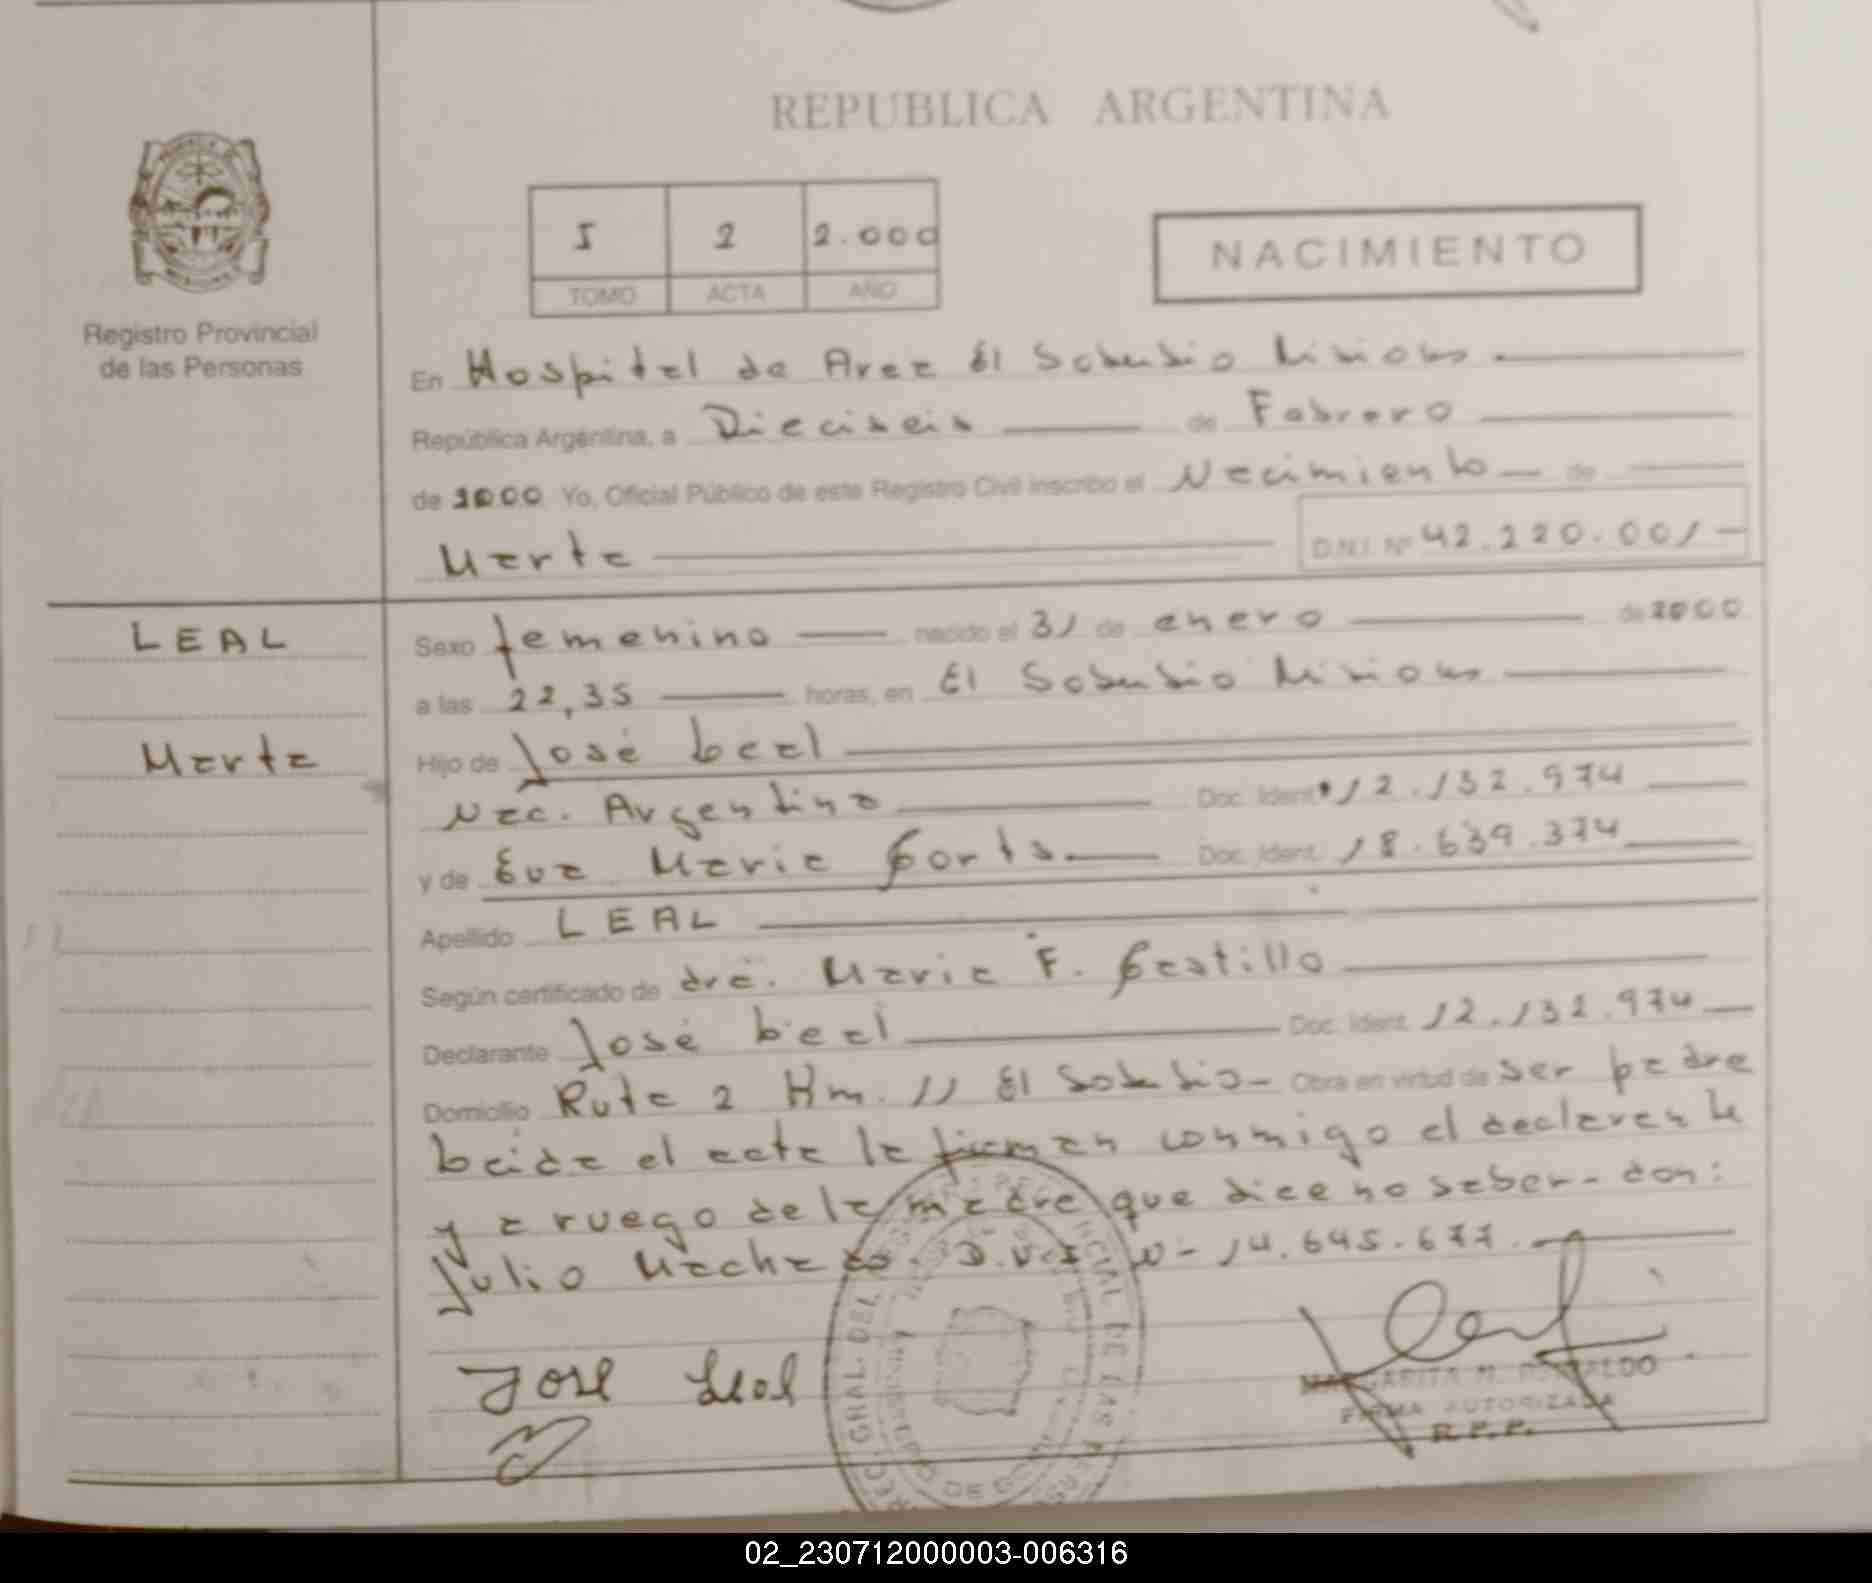 REPUBLICA ARGENTINA
I 2 2.000
TOMO ACTA AÑO
NACIMIENTO
Registro Provincial
de las Personas
En Hospital de Area El Soberbio Misiones
República Argentina, a Dieciseis de Febrero
de 2000 Yo, Oficial Público de este Registro Civil inscribo el Nacimiento de
Marta D.N.I. Nº 42.220.001
LEAL
Marta
Sexo femenino nacido el 31 de enero de 2000
a las 22,35 horas, en El Soberbio Misiones
Hijo de José Leal
Nac. Argentina Doc. Ident. 12.132.974
y de Eva Maria Doc. Ident. 18.639.374
Apellido LEAL
Según certificado de dra. Maria F. Castillo
Declarante José Leal Doc. Ident. 12.132.974
Domicilio Ruta 2 Km. 11 El Soberbio Obra en virtud de ser padre
Leida el acta la firman conmigo el declarante
y a ruego de la madre que dice no saber don:
Julio Machado. D.N.I. Nº 14.645.677
Jose Leal
MARGARITA M.
FIRMA AUTORIZADA
R.P.P.
02_230712000003-006316